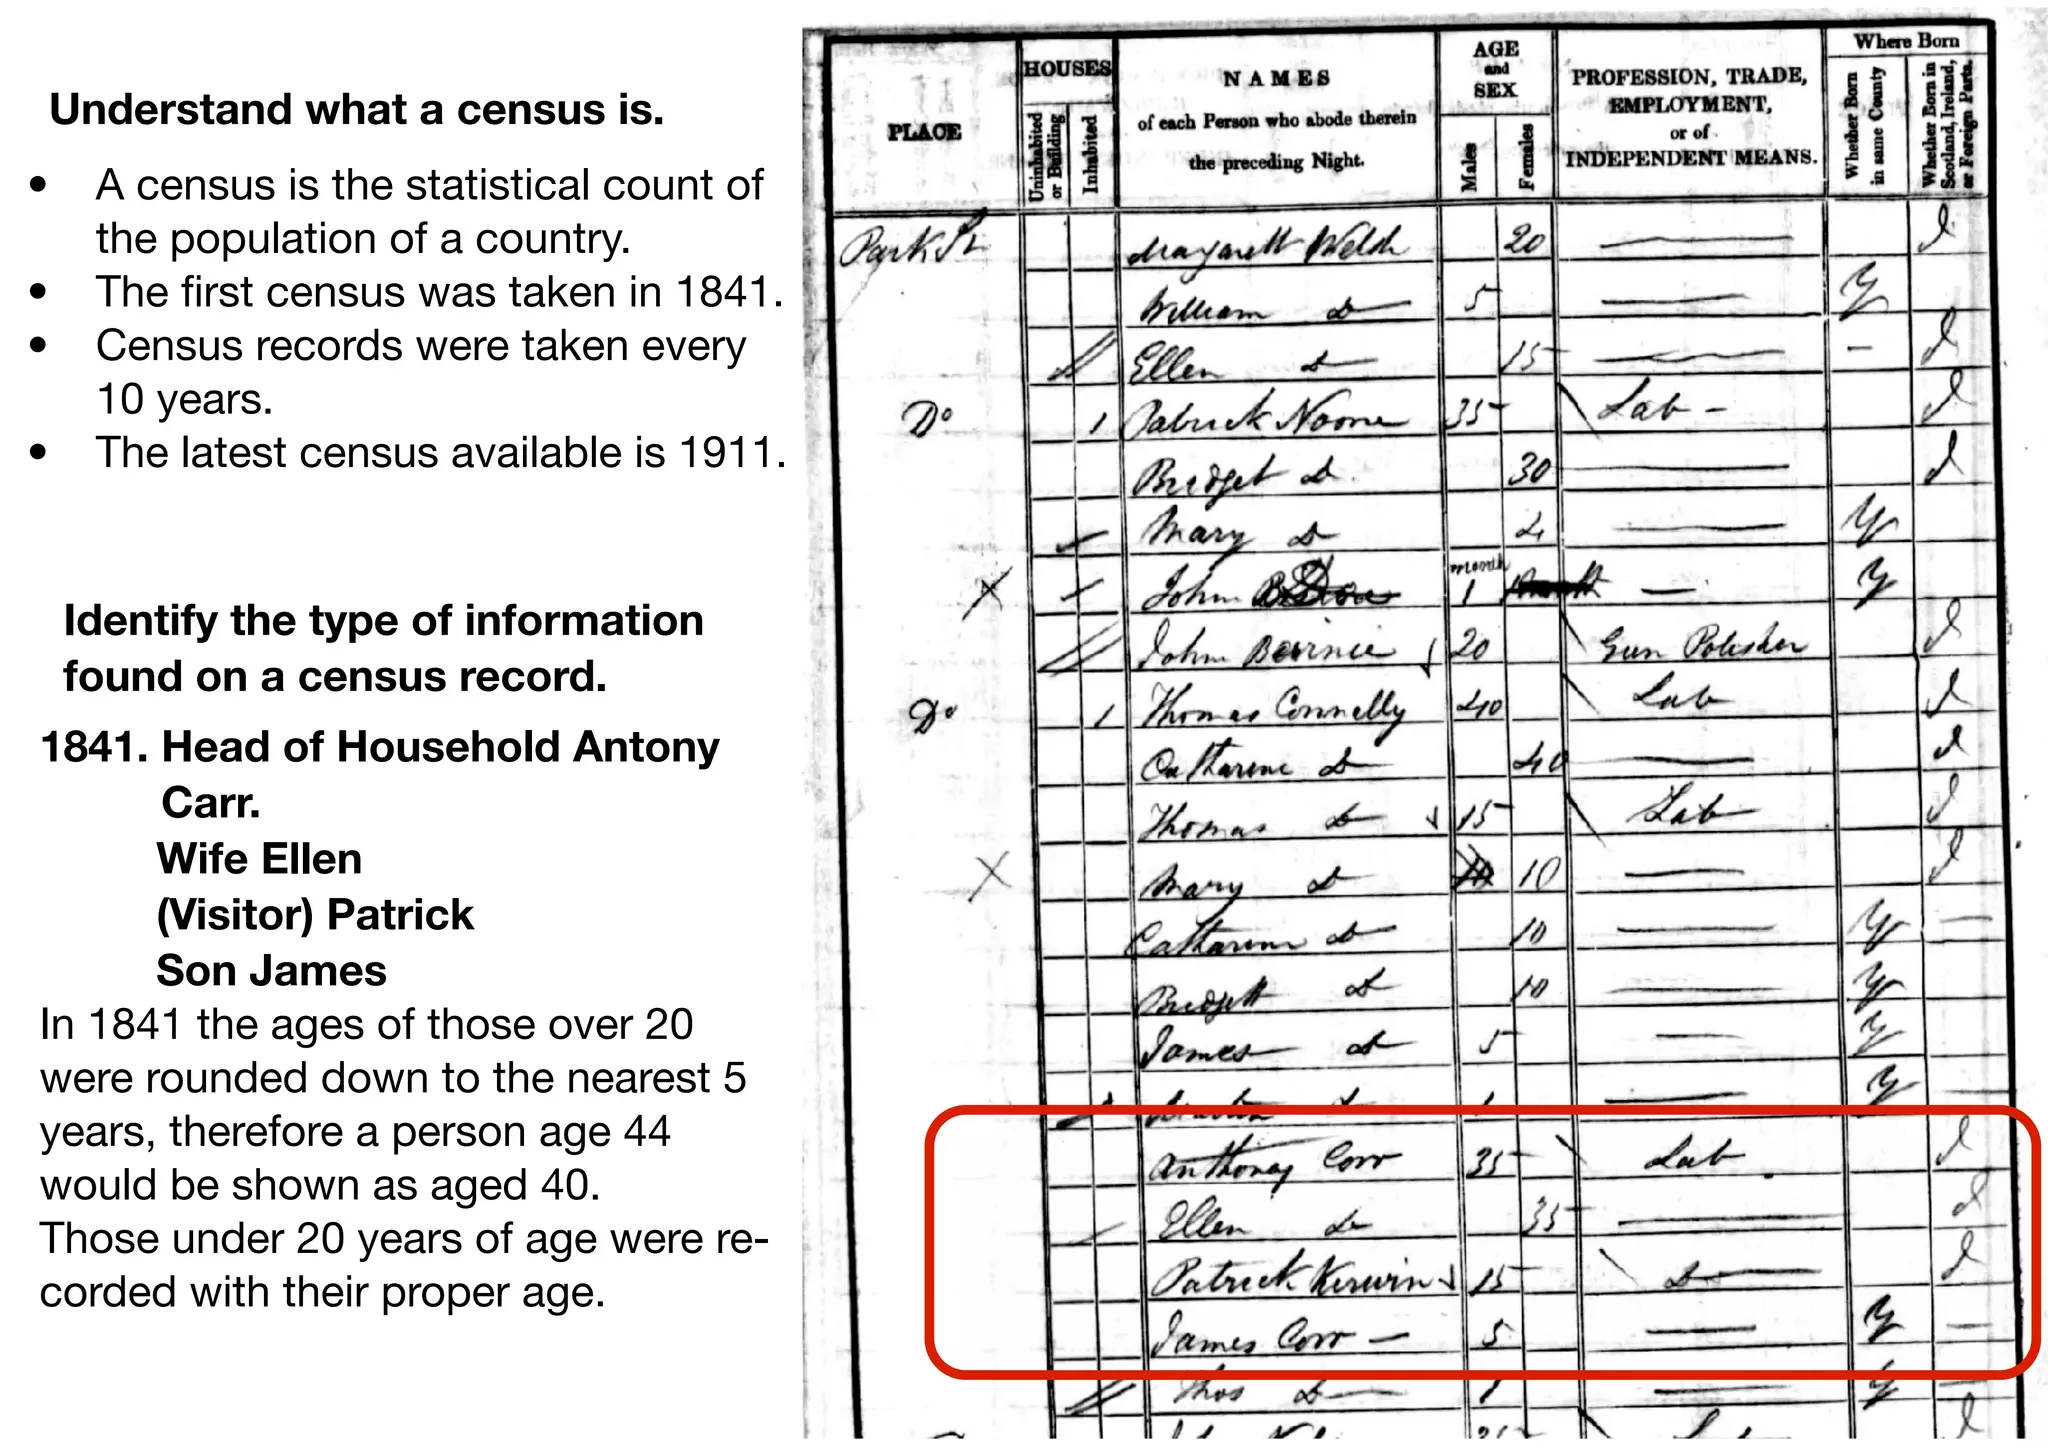 Understand what a census is.
• A census is the statistical count of
the population of a country.
• The first census was taken in 1841.
• Census records were taken every
10 years.
• The latest census available is 1911.
Identify the type of information
found on a census record.
1841. Head of Household Antony
Carr.
Wife Ellen
(Visitor) Patrick
Son James
In 1841 the ages of those over 20
were rounded down to the nearest 5
years, therefore a person age 44
would be shown as aged 40.
Those under 20 years of age were re-
corded with their proper age.
PLACE
HOUSES
Uninhabited
or Building
Inhabited
NAMES
of each Person who abode therein
the preceding Night.
AGE
and
SEX
Males
Females
PROFESSION, TRADE,
EMPLOYMENT,
or of
INDEPENDENT MEANS.
Where Born
Whether Born
in same County
Whether Born in
Scotland, Ireland,
or Foreign Parts.
Park St Margarett Welch 20 I
William Do 5 Y
Ellen Do 15 I
Do 1 Patrick Noone 35 Lab I
Bridget Do 30 I
Mary Do 2 Y
John month 1 Y
John 20 Gun Polisher I
Do 1 Thomas Connelly 40 Lab I
Catharine Do 40 I
Thomas Do 15 Lab I
Mary Do 10 I
Catharine Do 10 Y
Bridgett Do 10 Y
James Do 5 Y
Do 1 Y
Anthoney Corr 35 Lab I
Ellen Do 35 I
Patrick Kerwin 15 Do I
James Corr 5 Y
Thos Do 1 Y